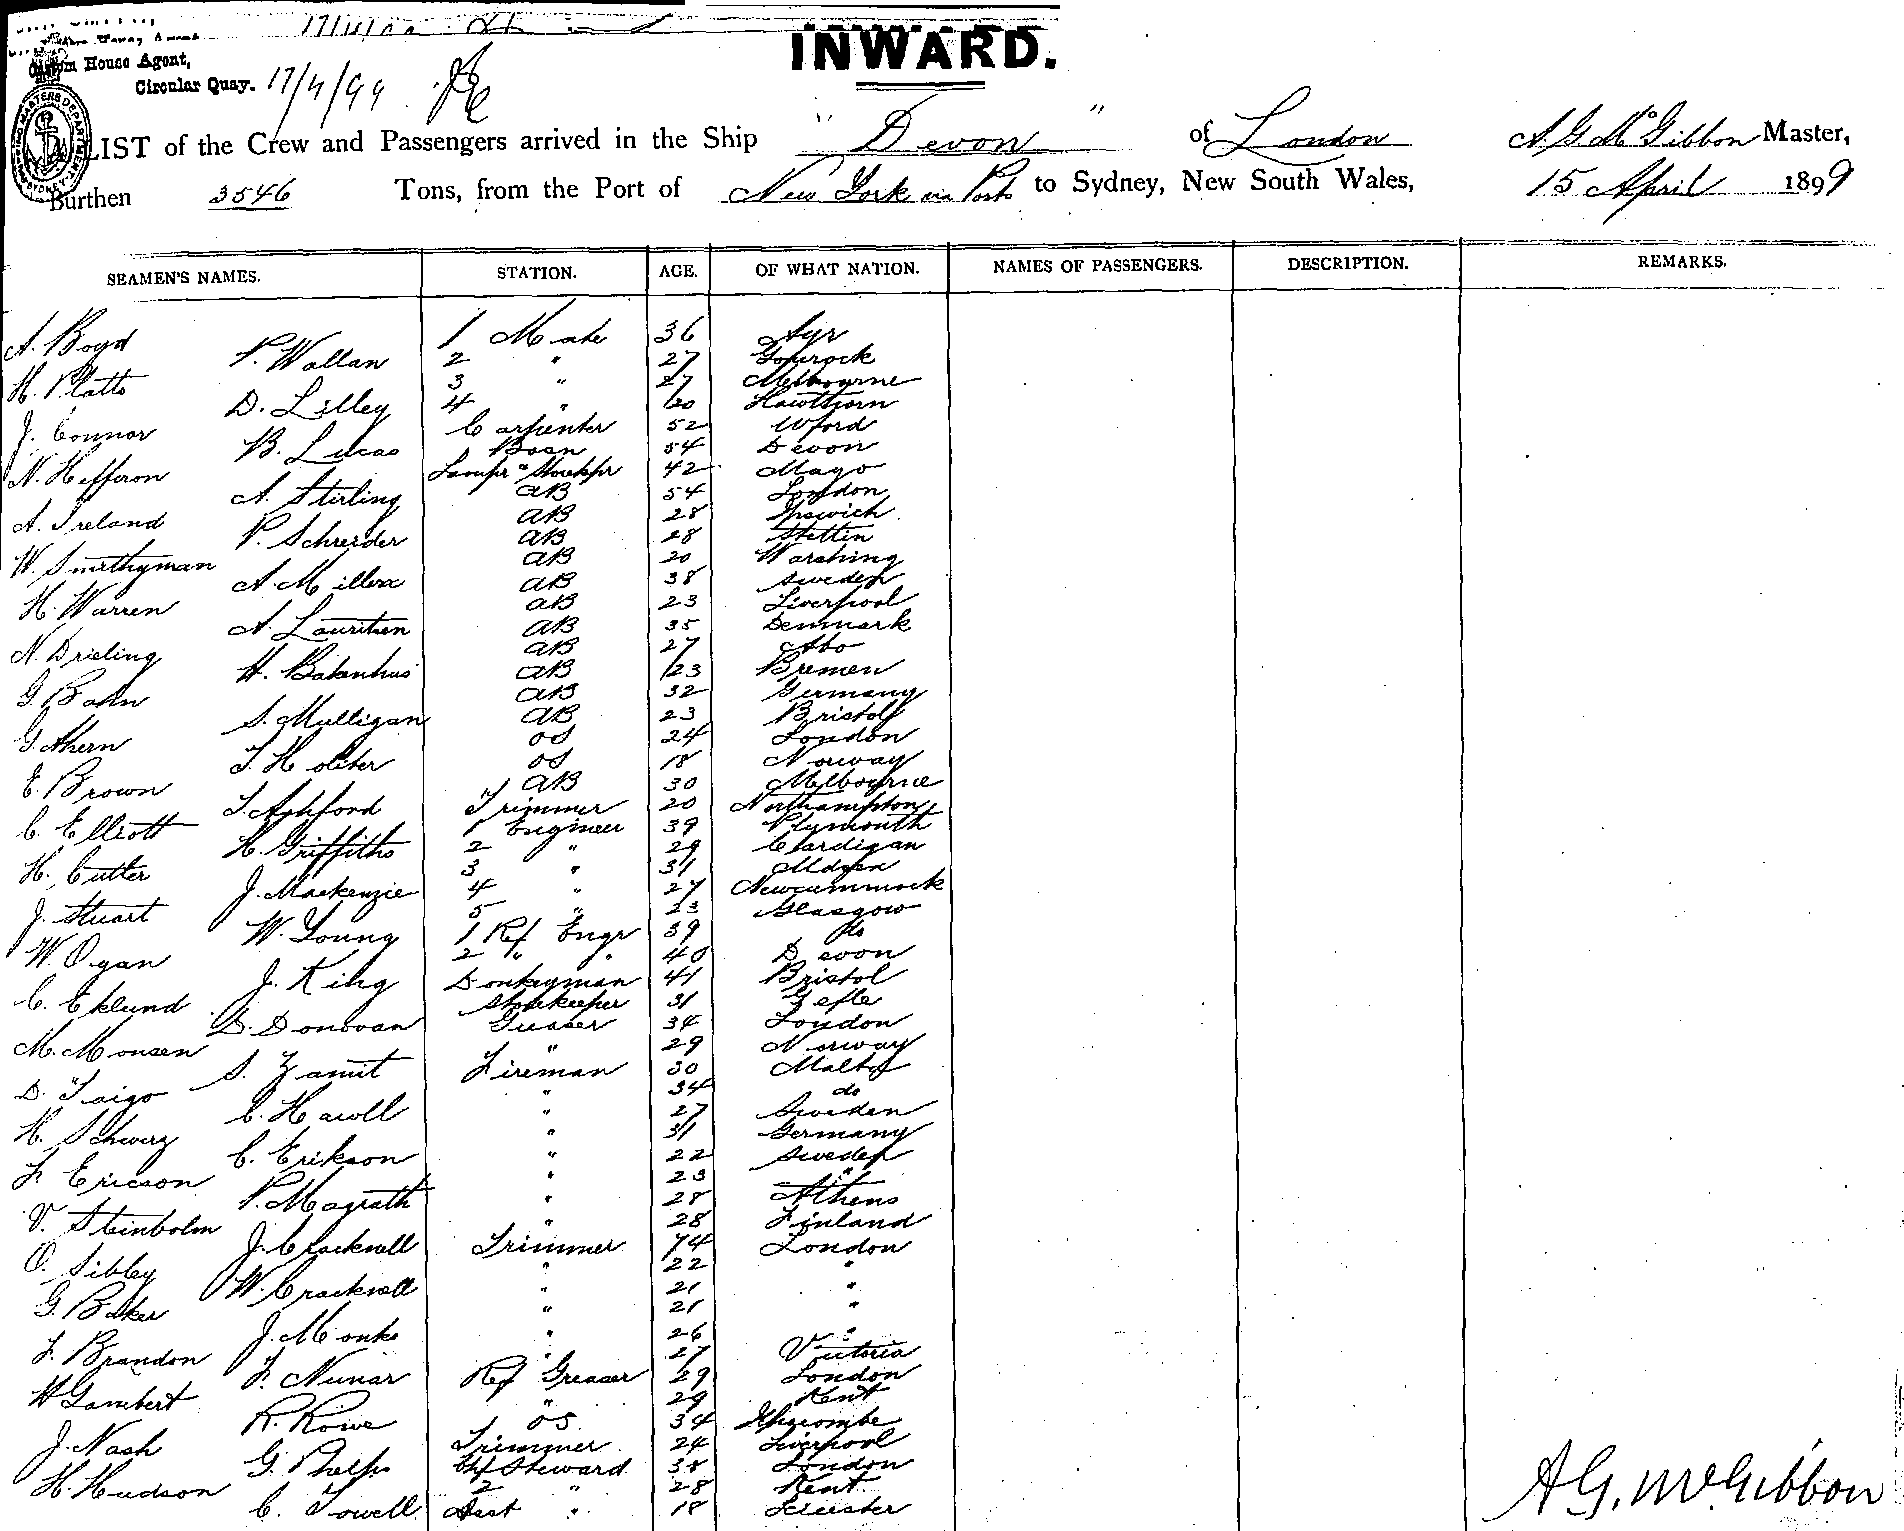 Custom House Agent,
Circular Quay. 17/4/99
INWARD.
LIST of the Crew and Passengers arrived in the Ship " Devon " of London A G McGibbon Master,
Burthen 3546 Tons, from the Port of New York via Ports to Sydney, New South Wales, 15 April 1899
SEAMEN'S NAMES. STATION. AGE. OF WHAT NATION. NAMES OF PASSENGERS. DESCRIPTION. REMARKS.
A. Boyd 1 Mate 36 Ayr
P. Wallan 2 " 27 Gourock
H. Platts 3 " 27 Melbourne
D. Lilley 4 " 20 Hawthorn
J. Connor Carpenter 52 Wford
B. Lucas Bosn 54 Devon
N. Hefferon Lampr & Storekpr 42 Mayo
A. Stirling AB 54 London
A. Ireland AB 28 Ipswich
P. Schreider AB 28 Stettin
W. Smithyman AB 20
A. AB 38 Sweden
H. Warren AB 23 Liverpool
A. Lauritsen AB 35 Denmark
N. Drieling AB 27 Abo
H. Batenhus AB 23 Bremen
G. Bahn AB 32 Germany
S. Mulligan AB 23 Bristol
G. Ahern OS 24 London
T. Holiter OS 18 Norway
E. Brown AB 30 Melbourne
T. Ashford Trimmer 20 Northampton
C. Elliott 1 Engineer 39 Plymouth
H. Griffiths 2 " 29 Cardigan
H. Cutler 3 " 31
J. Mackenzie 4 " 27 Newcummock
J. Stuart 5 " 23 Glasgow
W. Young 1 Ref Engr 39 do
W. Ogan 2 " " 40 Devon
J. King Donkeyman 41 Bristol
C. Eklund Storekeeper 31 Gefle
D. Donovan Greaser 34 London
M. Monsen " 29 Norway
S. Zamit Fireman 30 Malta
D. Taigo " 34 do
C. Hawll " 27 Sweden
H. Schwerz " 31 Germany
C. Erikson " 22 Sweden
F. Ericson " 23 "
P. Magrath " 28 Athens
V. Steinbolm " 28 Finland
J. Cracknell Trimmer 74 London
O. Sibley " 22 "
W. Cracknell " 21 "
G. Baker " 21 "
J. Monks " 26 "
F. Brandon " 27 Victoria
F. Nunar Ref Greaser 29 London
W Lambert " 29 Kent
R. Rowe OS 34 Ilfracombe
J. Nash Trimmer 24 Liverpool
G. Phelps Chf Steward 38 London
H. Hudson 2 " 28 Kent
C. Towell Asst " 18 Leicester
A G. McGibbon